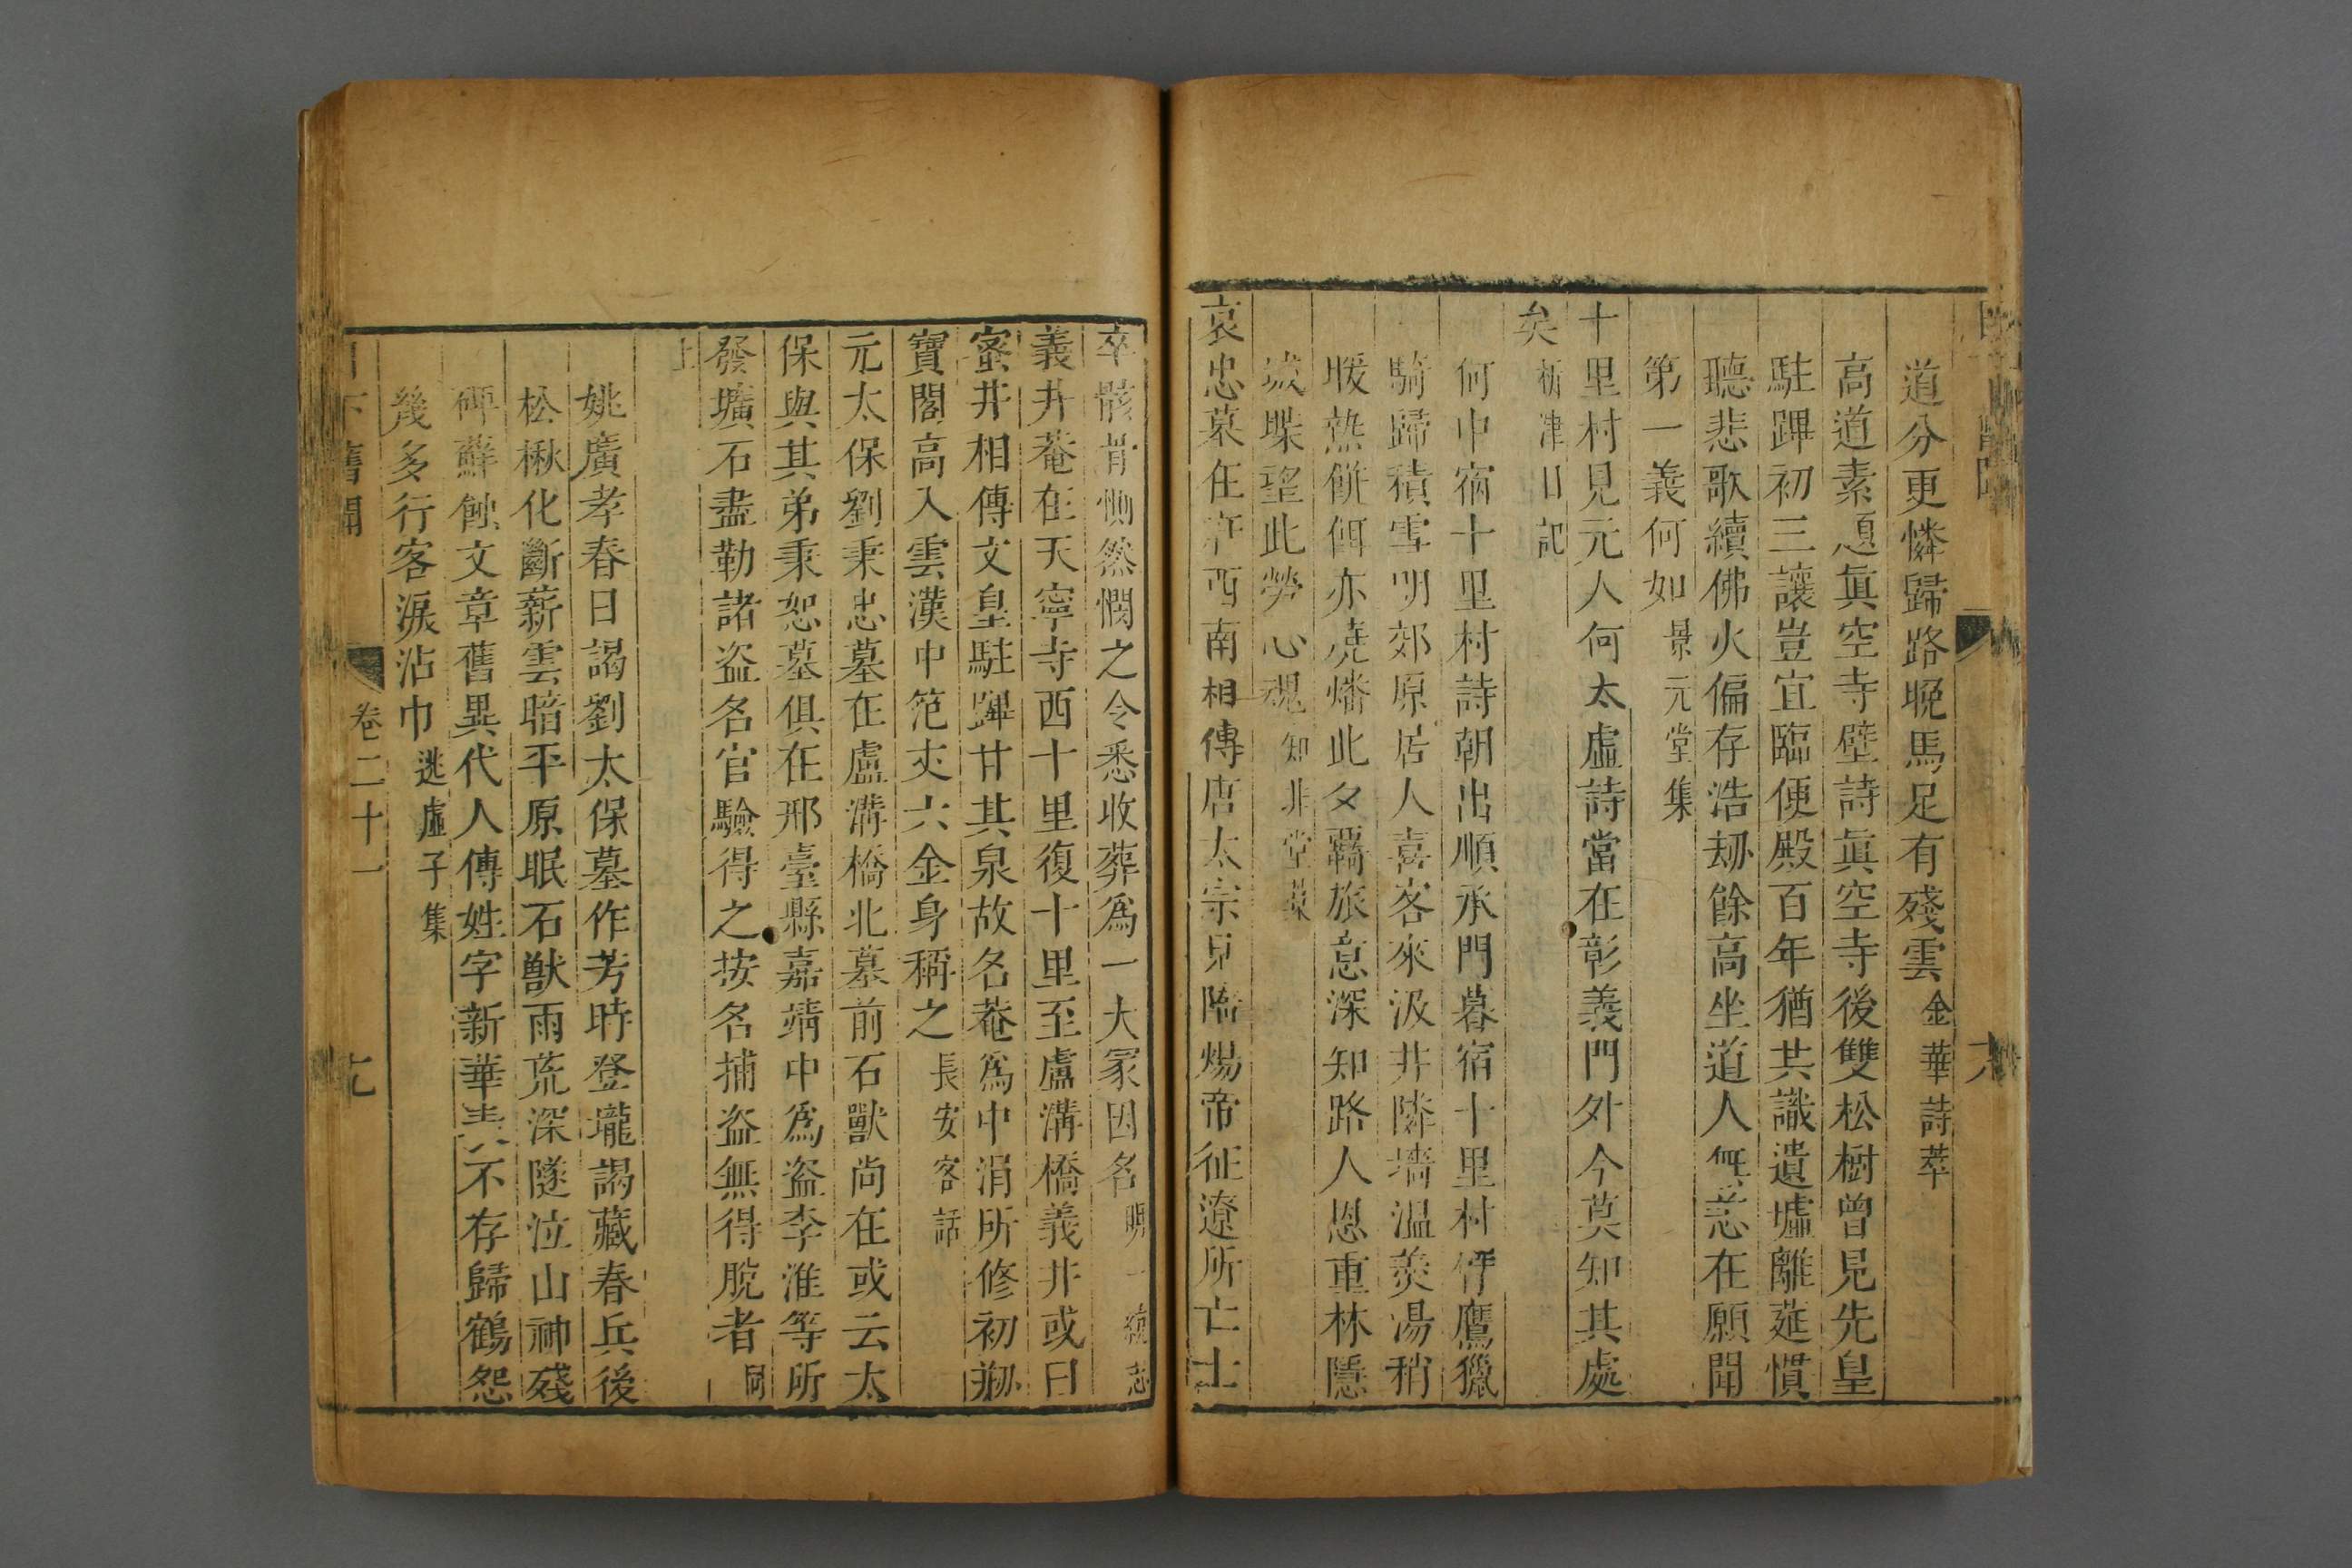 道分更憐歸路晚馬足有殘雲金華詩萃
高道素題眞空寺壁詩眞空寺後雙松樹曾見先皇
駐蹕初三讓豈宜臨便殿百年猶共識遺墟離筵慣
聽悲歌續佛火偏存浩刼餘高坐道人無恙在願聞
第一義何如景元堂集
十里村見元人何太虛詩當在彰義門外今莫知其處
矣析津日記
何中宿十里村詩朝出順承門暮宿十里村伻鷹獵
騎歸積雪明郊原居人喜客來汲井隣墻溫羹湯稍
暖熱餅餌亦燒燔此夕羇旅意深知路人恩重林隱
城堞望此勞心魂知非堂藁
哀忠墓在府西南相傳唐太宗見隋煬帝征遼所亡士
卒骸骨惻然憫之令悉收葬爲一大冢因名明一統志
義井菴在天寧寺西十里復十里至盧溝橋義井或曰
蜜井相傳文皇駐蹕甘其泉故名菴爲中涓所修初剏
寶閣高入雲漢中范丈六金身稱之長安客話
元太保劉秉忠墓在盧溝橋北墓前石獸尚在或云太
保與其弟秉恕墓俱在邢臺縣嘉靖中爲盜李淮等所
發壙石盡勒諸盜名官驗得之按名捕盜無得脫者同
上
姚廣孝春日謁劉太保墓作芳時登壠謁藏春兵後
松楸化斷薪雲暗平原眠石獸雨荒深隧泣山神殘
碑蘚蝕文章舊異代人傳姓字新華表不存歸鶴怨
幾多行客淚沾巾逃虛子集
日下舊聞
卷二十一